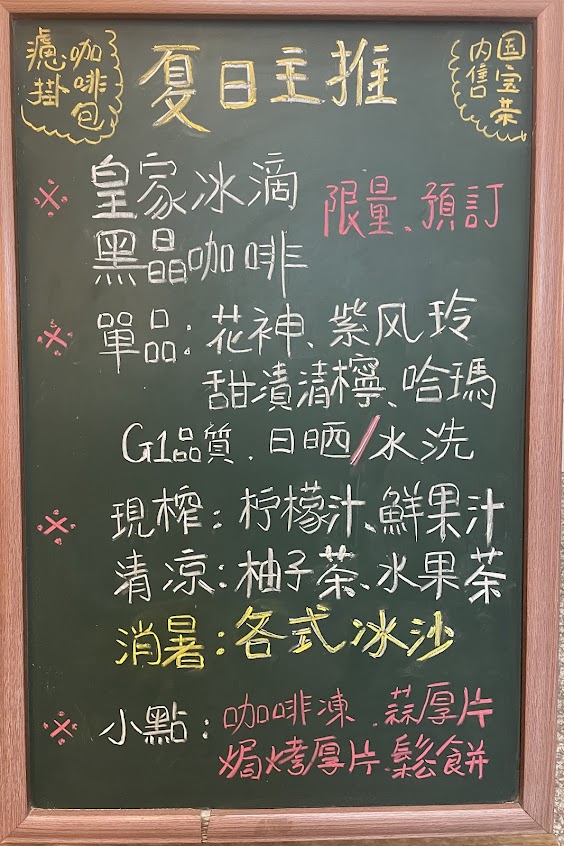 濾掛
咖啡包
夏日主推
国宝茶
內售
※ 皇家冰滴
黑晶咖啡
限量、預訂
※ 單品：花神、紫风玲
甜漬清檸、哈瑪
G1品質．日晒/水洗
※ 現榨：柠檬汁、鮮果汁
清凉：柚子茶、水果茶
消暑：各式冰沙
※ 小點：咖啡凍．蒜厚片
焗烤厚片鬆餅